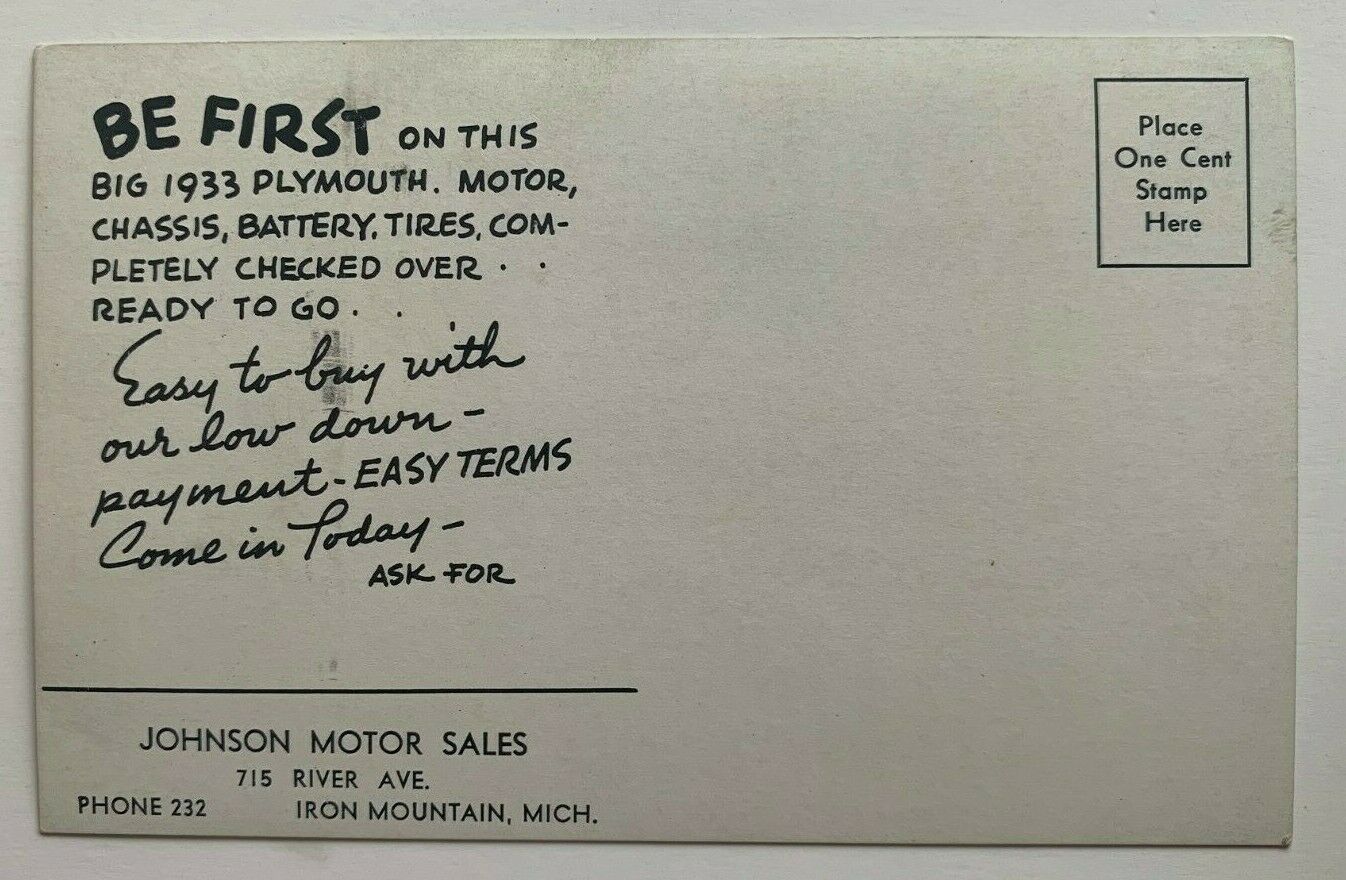 BE FIRST ON THIS
BIG 1933 PLYMOUTH. MOTOR,
CHASSIS, BATTERY, TIRES, COM-
PLETELY CHECKED OVER . .
READY TO GO . .
Easy to buy with
our low down -
payment - EASY TERMS
Come in Today -
ASK FOR
JOHNSON MOTOR SALES
715 RIVER AVE.
PHONE 232 IRON MOUNTAIN, MICH.
Place
One Cent
Stamp
Here